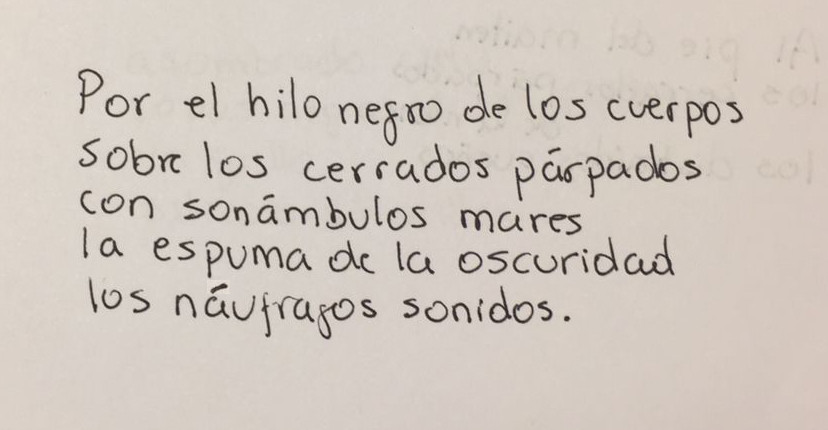 Por el hilo negro de los cuerpos
sobre los cerrados párpados
con sonámbulos mares
la espuma de la oscuridad
los náufragos sonidos.